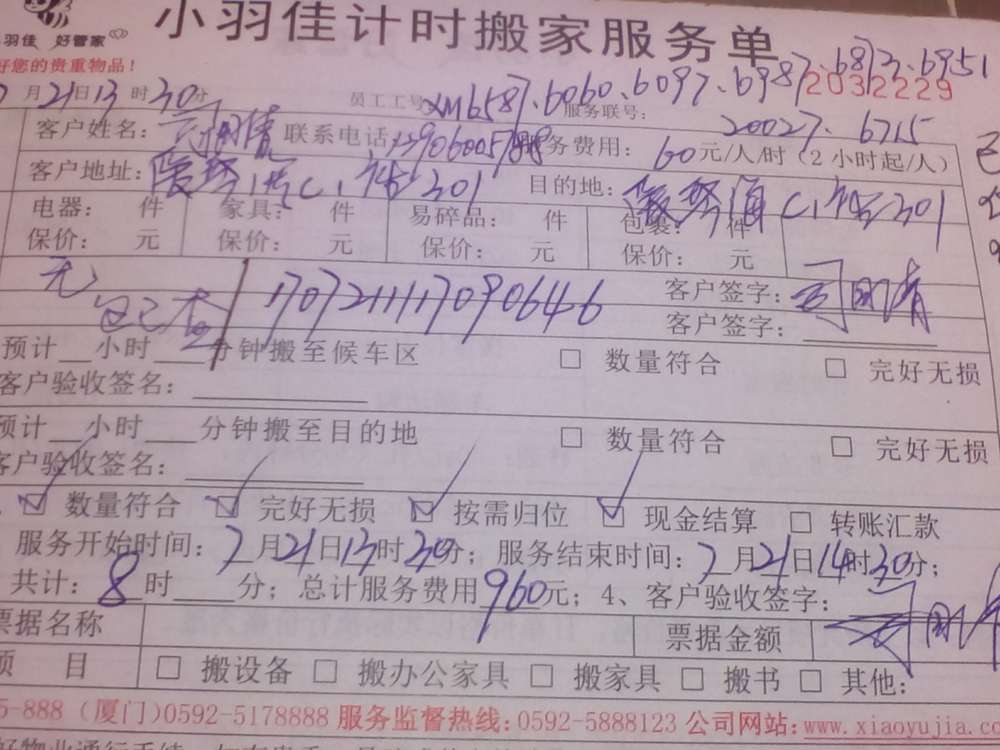 小羽佳计时搬家服务单
羽佳 好管家
好您的贵重物品！
2032229
月21日13时30分 员工工号XM6587、6060、6097、6987、6873、6951
服务联号： 20027、6715
客户姓名： 联系电话 服务费用：60元/人/时（2小时起/人）
客户地址： C1 301 目的地： C1 301
电器： 件 家具： 件 易碎品： 件 包裹： 件
保价： 元 保价： 元 保价： 元 保价： 元
无 客户签字：
自己查 1707211117090646 客户签字：
预计__小时___分钟搬至候车区 □ 数量符合 □ 完好无损
客户验收签名：
预计__小时___分钟搬至目的地 □ 数量符合 □ 完好无损
客户验收签名：
☑ 数量符合 ☑ 完好无损 ☑ 按需归位 ☑ 现金结算 □ 转账汇款
服务开始时间：7月21日13时30分；服务结束时间：7月21日14时30分；
共计：8时____分；总计服务费用960元；4、客户验收签字：
票据名称 票据金额
项 目 □ 搬设备 □ 搬办公家具 □ 搬家具 □ 搬书 □ 其他：
5-888（厦门）0592-5178888 服务监督热线：0592-5888123 公司网站：www.xiaoyujia.co